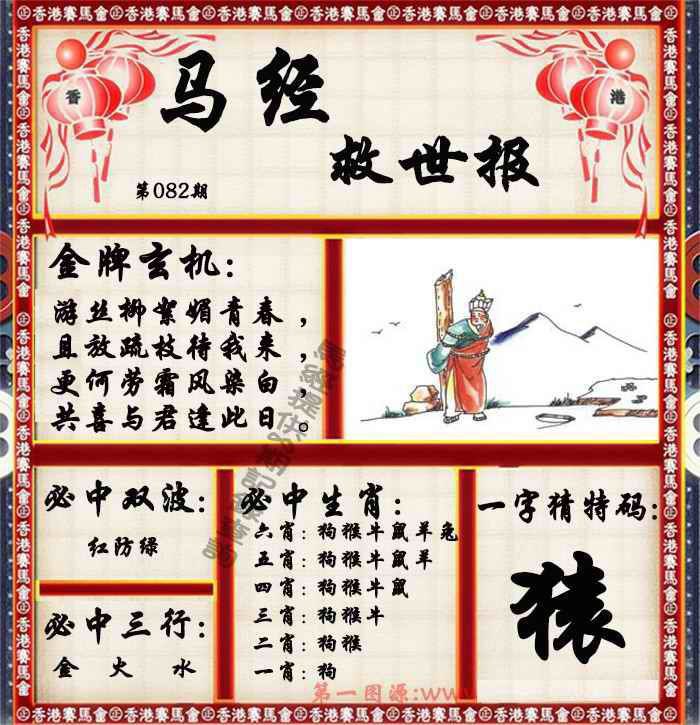 香港賽馬會
香
港
马经
救世报
第082期
金牌玄机：
游丝柳絮媚青春，
且放疏枝待我来，
更何劳霜风染白，
共喜与君逢此日。
必中双波：
红防绿
必中三行：
金 火 水
必中生肖：
六肖：狗猴牛鼠羊兔
五肖：狗猴牛鼠羊
四肖：狗猴牛鼠
三肖：狗猴牛
二肖：狗猴
一肖：狗
一字猜特码：
猿
第一图源:www